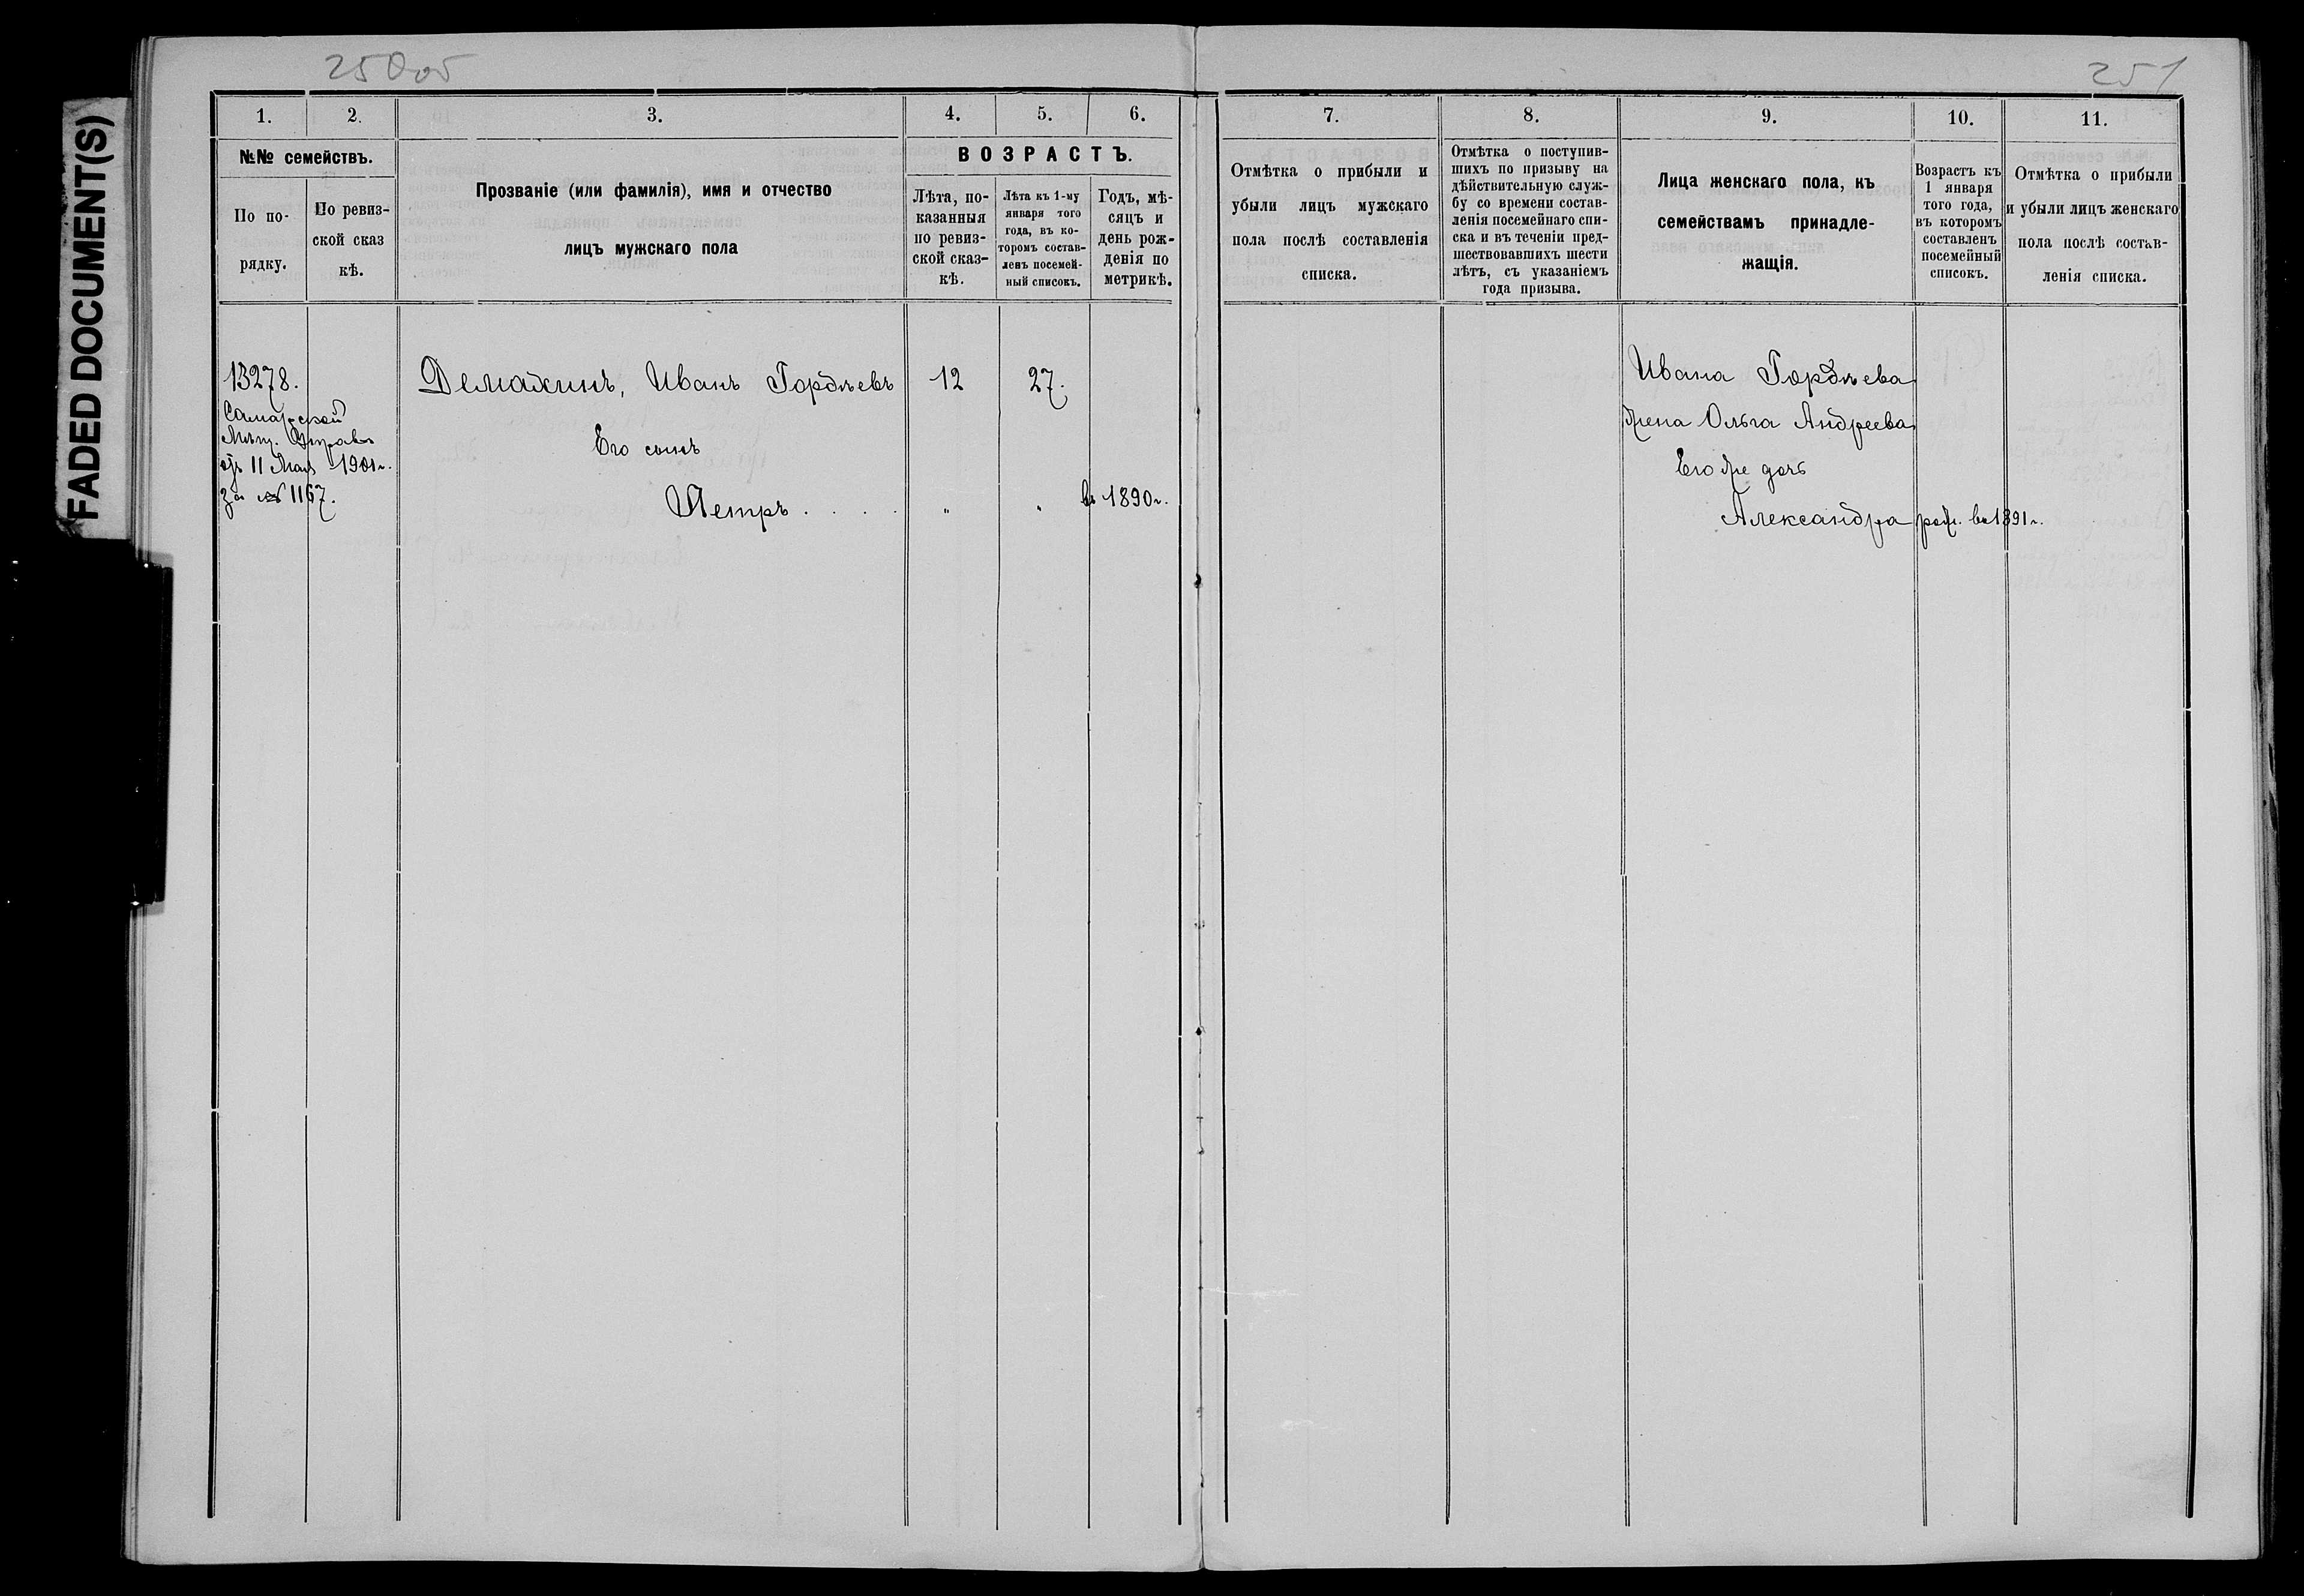 FADED DOCUMENT(S)
250об
251
1.
2.
3.
4.
5.
6.
№№ семействъ.
По по-
рядку.
По ревиз-
ской сказ
кѣ.
Прозваніе (или фамилія), имя и отчество
лицъ мужскаго пола
ВОЗРАСТЪ.
Лѣта, по-
казанныя
по ревиз-
ской сказ-
кѣ.
Лѣта къ 1-му
января того
года, въ ко-
торомъ состав-
ленъ посемей-
ный списокъ.
Годъ, мѣ-
сяцъ и
день рож-
денія по
метрикѣ.
7.
8.
9.
10.
11.
Отмѣтка о прибыли и
убыли лицъ мужскаго
пола послѣ составленія
списка.
Отмѣтка о поступив-
шихъ по призыву на
дѣйствительную служ-
бу со времени состав-
ленія посемейнаго спи-
ска и въ теченіи пред-
шествовавшихъ шести
лѣтъ, съ указаніемъ
года призыва.
Лица женскаго пола, къ
семействамъ принадле-
жащія.
Возрастъ къ
1 января
того года,
въ которомъ
составленъ
посемейный
списокъ.
Отмѣтка о прибыли
и убыли лицъ женскаго
пола послѣ состав-
ленія списка.
13278.
Самарской
Мѣщ. Управы
отъ 11 Мая 1901 г.
за № 1167.
Демахинъ, Иванъ Гордѣевъ 12 27.
Его сынъ
Петръ . . . . " " въ 1890 г.
Ивана Гордѣева
жена Ольга Андреева
Его же дочь
Александра род. въ 1891 г.